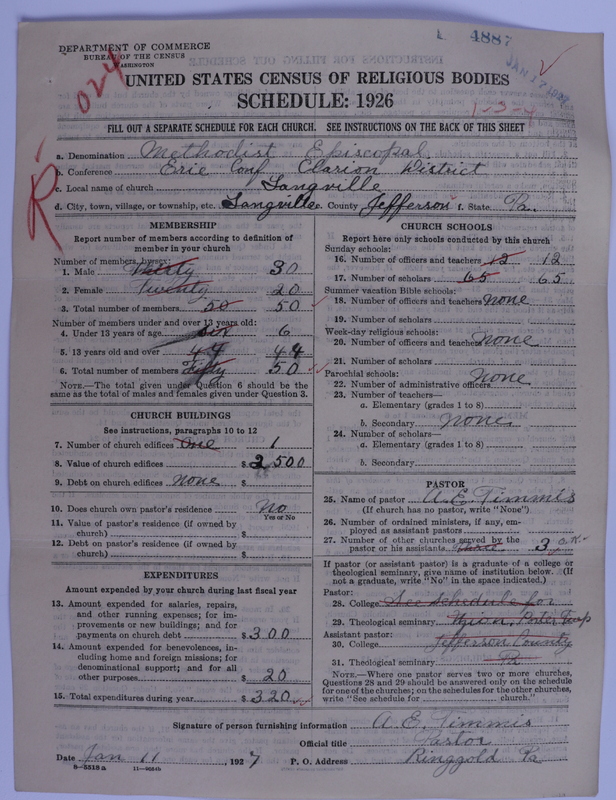 4887
DEPARTMENT OF COMMERCE
BUREAU OF THE CENSUS
WASHINGTON
024
JAN 17 1927
UNITED STATES CENSUS OF RELIGIOUS BODIES
SCHEDULE: 1926
1-3-4
FILL OUT A SEPARATE SCHEDULE FOR EACH CHURCH. SEE INSTRUCTIONS ON THE BACK OF THIS SHEET
R
a. Denomination Methodist Episcopal
b. Conference Erie Conf Clarion District
c. Local name of church Langville
d. City, town, village, or township, etc. Langville e. County Jefferson f. State Pa.
MEMBERSHIP
Report number of members according to definition of member in your church
Number of members, by sex:
1. Male Thirty 30
2. Female Twenty 20
3. Total number of members 50 50
Number of members under and over 13 years old:
4. Under 13 years of age six 6
5. 13 years old and over 44 44
6. Total number of members Fifty 50
NOTE.—The total given under Question 6 should be the same as the total of males and females given under Question 3.
CHURCH BUILDINGS
See instructions, paragraphs 10 to 12
7. Number of church edifices One 1
8. Value of church edifices $ 2500
9. Debt on church edifices None $
10. Does church own pastor's residence No
Yes or No
11. Value of pastor's residence (if owned by church) $
12. Debt on pastor's residence (if owned by church) $
EXPENDITURES
Amount expended by your church during last fiscal year
13. Amount expended for salaries, repairs, and other running expenses; for improvements or new buildings; and for payments on church debt $ 300
14. Amount expended for benevolences, including home and foreign missions; for denominational support; and for all other purposes $ 20
15. Total expenditures during year $ 320
CHURCH SCHOOLS
Report here only schools conducted by this church
Sunday schools:
16. Number of officers and teachers 12 12
17. Number of scholars 65 65
Summer vacation Bible schools:
18. Number of officers and teachers None
19. Number of scholars
Week-day religious schools:
20. Number of officers and teachers None
21. Number of scholars
Parochial schools:
22. Number of administrative officers None
23. Number of teachers—
a. Elementary (grades 1 to 8)
b. Secondary None
24. Number of scholars—
a. Elementary (grades 1 to 8)
b. Secondary
PASTOR
25. Name of pastor A.E. Timmis
(If church has no pastor, write "None")
26. Number of ordained ministers, if any, employed as assistant pastors
27. Number of other churches served by the pastor or his assistants Three 3 O.K.
If pastor (or assistant pastor) is a graduate of a college or theological seminary, give name of institution below. (If not a graduate, write "No" in the space indicated.)
Pastor:
28. College See schedule for
29. Theological seminary
Assistant pastor:
30. College Jefferson County
31. Theological seminary Pa
NOTE.—Where one pastor serves two or more churches, Questions 28 and 29 should be answered only on the schedule for one of the churches; on the schedules for the other churches, write "See schedule for church."
Signature of person furnishing information A E. Timmis
Official title Pastor
Date Jan 11, 1927 P. O. Address Ringgold Pa
8—5518a 11—9684b